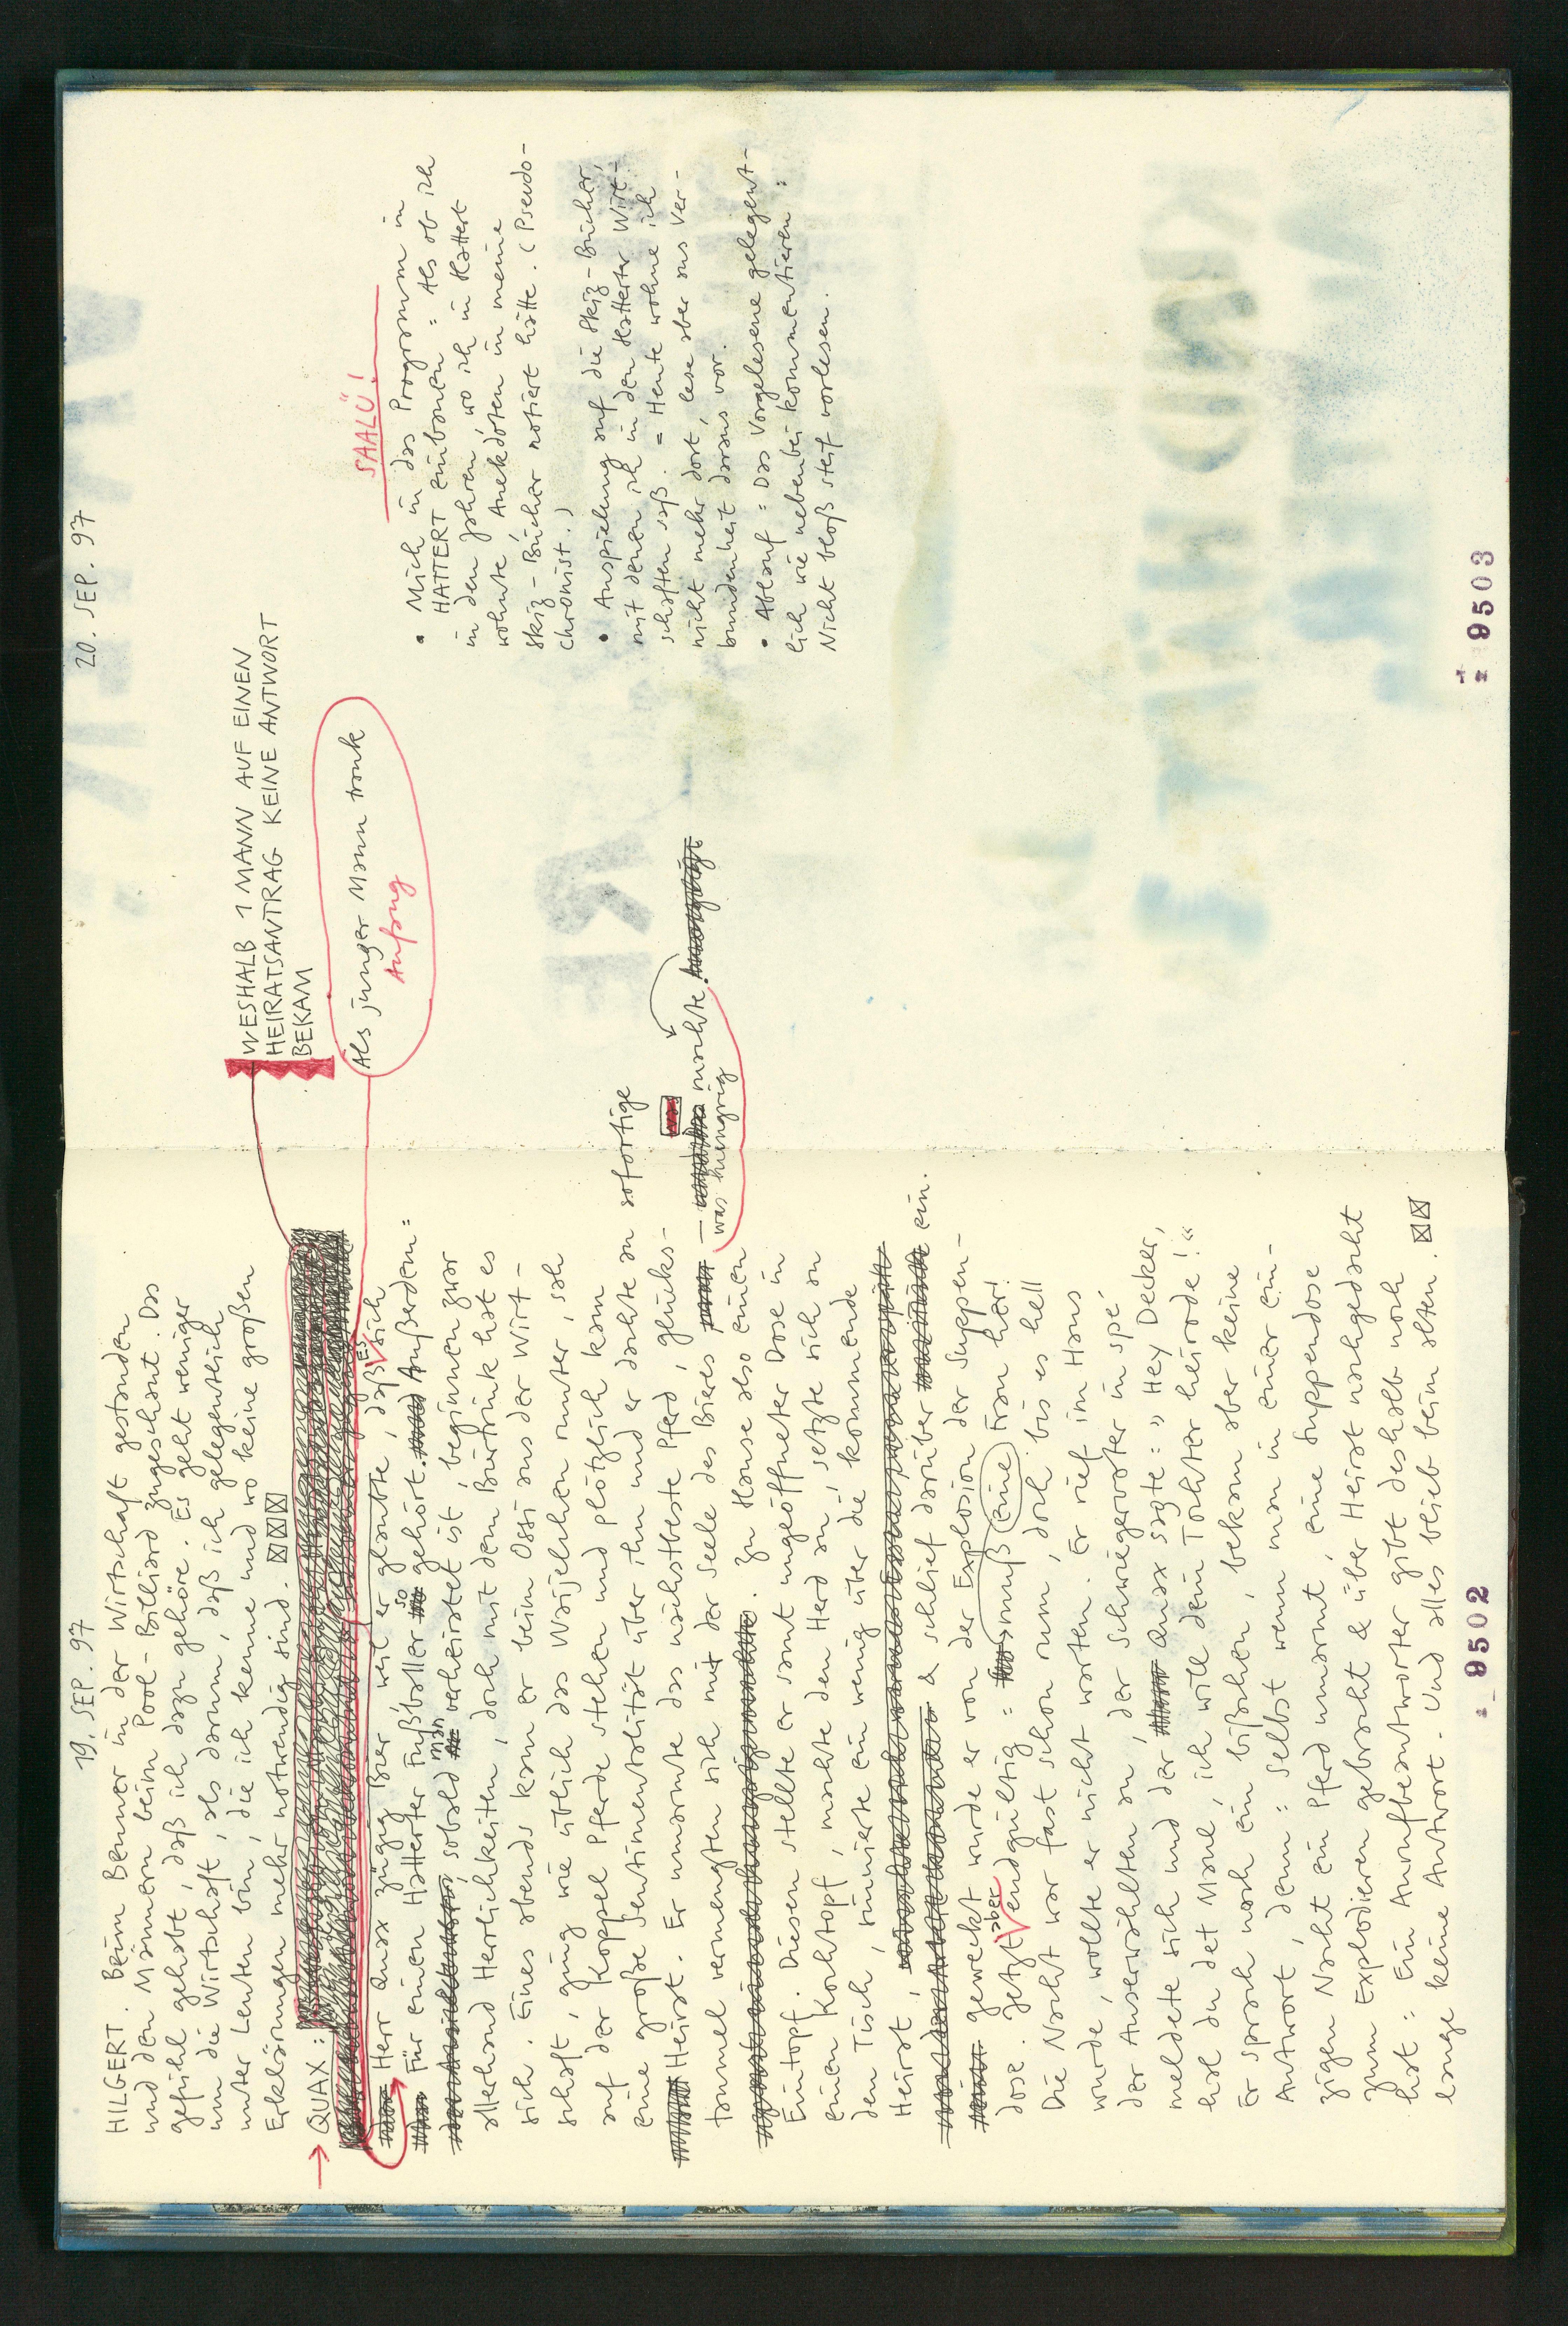 19. SEP. 97
HILGERT. Beim Benner in der Wirtschaft gestanden
und den Männern beim Pool-Billiard zugeschaut. Das
gefühl gehabt, daß ich dazu gehöre. Es geht weniger
um die Wirtschaft, als darum, daß ich gelegentlich
unter Leuten bin, die ich kenne und wo keine großen
Erklärungen mehr notwendig sind.
→ QUAX:
Herr Quax zügig Bier, weil er glaubte, daß ES sich
Für einen Hatterter Fußballer so gehört. Außerdem =
sobald man verheiratet ist, beginnen zwar
allerhand Herrlichkeiten, doch mit dem Bürtrink hat es
sich. Eines abends kam er beim Ossi aus der Wirt-
schaft, ging wie üblich das Waijelchen runter, sah
auf der Koppel Pferde stehen und plötzlich kam
eine große Sentimentalität über ihn und er dachte an sofortige
Heirat. Er umarmte das nächstbeste Pferd, glücks-
taumel vermengten sich mit der Seele des Bieres —
was hungrig machte
. Zu Hause also einen
Eintopf. Diesen stellte er samt ungeöffneter Dose in
einen Kochtopf, machte den Herd an, setzte sich an
den Tisch, sinnierte ein wenig über die kommende
Heirat,
& schlief darüber ein.
geweckt wurde er von der Explosion der Suppen-
dose. Jetzt aber endgültig = muß eine Frau her!
Die Nacht war fast schon rum, doch bis es hell
wurde, wollte er nicht warten. Er rief im Haus
der Auserwählten an, der Schwiegervater in spé
meldete sich und der Quax sagte: „Hey Decker,
hal du det Maul, ich will dein Tochter heirode!“
Er sprach noch ein bißchen, bekam aber keine
Antwort, denn: Selbst wenn man in einer ein-
zigen Nacht ein Pferd umarmt, eine Suppendose
zum Explodieren gebracht & über Heirat nachgedacht
hat: Ein Anrufbeantworter gibt deshalb noch
lange keine Antwort. Und alles blieb beim alten.
9502
20. SEP. 97
WESHALB 1 MANN AUF EINEN
HEIRATSANTRAG KEINE ANTWORT
BEKAM
Als junger Mann trank
Anfang
SAALÜ!
• Mich in das Programm in
HATTERT einbauen = Als ob ich
in den Jahren, wo ich in Hattert
wohnte, Anekdoten in meine
Skiz-Bücher notiert hätte. (Pseudo-
chronist.)
• Anspielung auf die Skiz-Bücher,
mit denen ich in den Hatterter Wirt-
schaften saß. = Heute wohne ich
nicht mehr dort, lese aber aus Ver-
bundenheit daraus vor.
• Ablauf = Das Vorgelesene gelegent-
lich wie nebenbei kommentieren =
Nicht bloß steif vorlesen.
9503